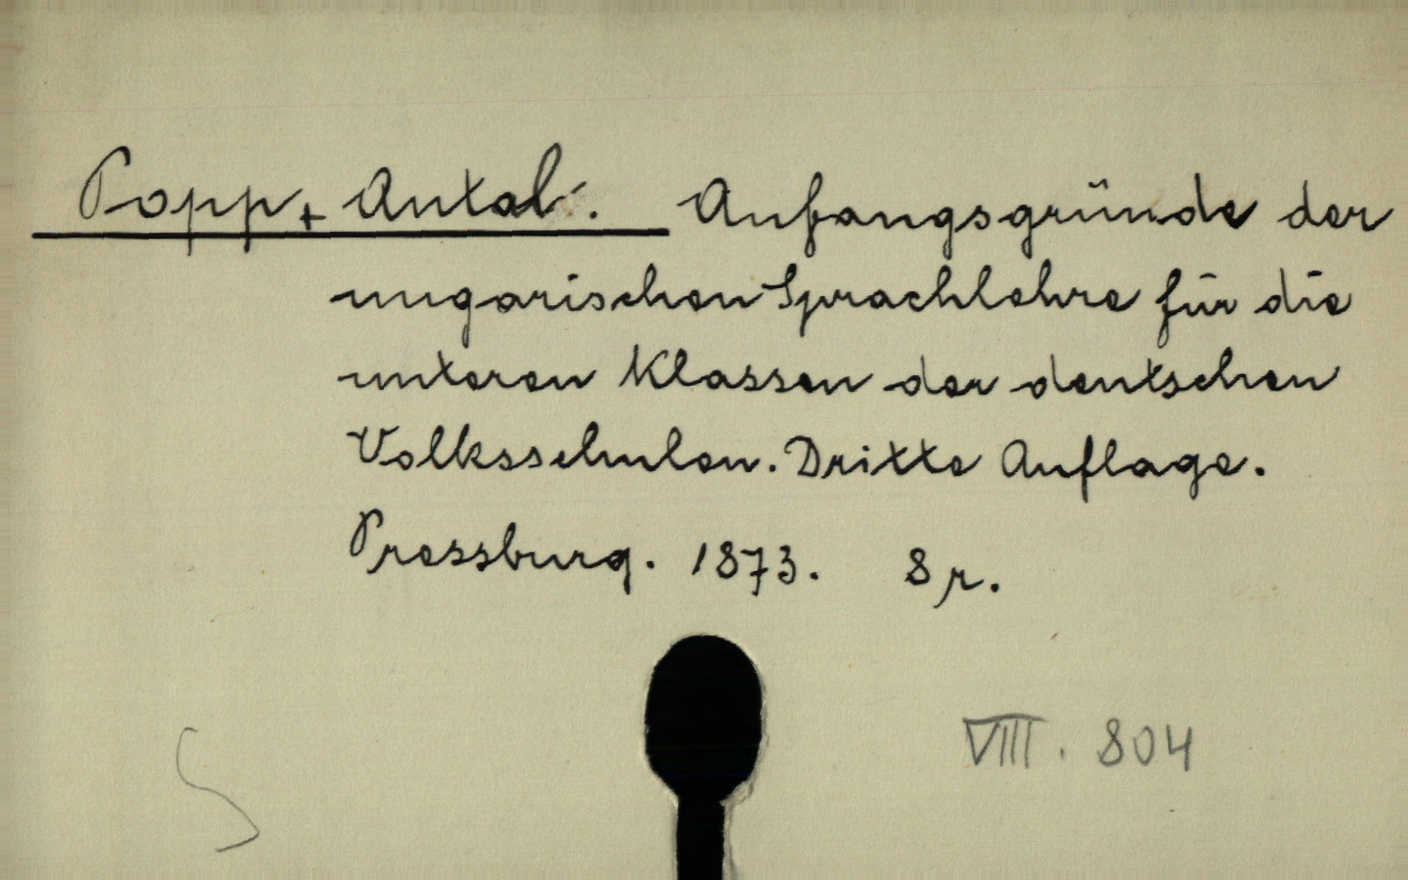 Popp, Antal. Anfangsgründe der
ungarischen Sprachlehre für die
unteren Klassen der deutschen
Volksschulen. Dritte Auflage.
Pressburg. 1873. 8 r.
VIII. 804